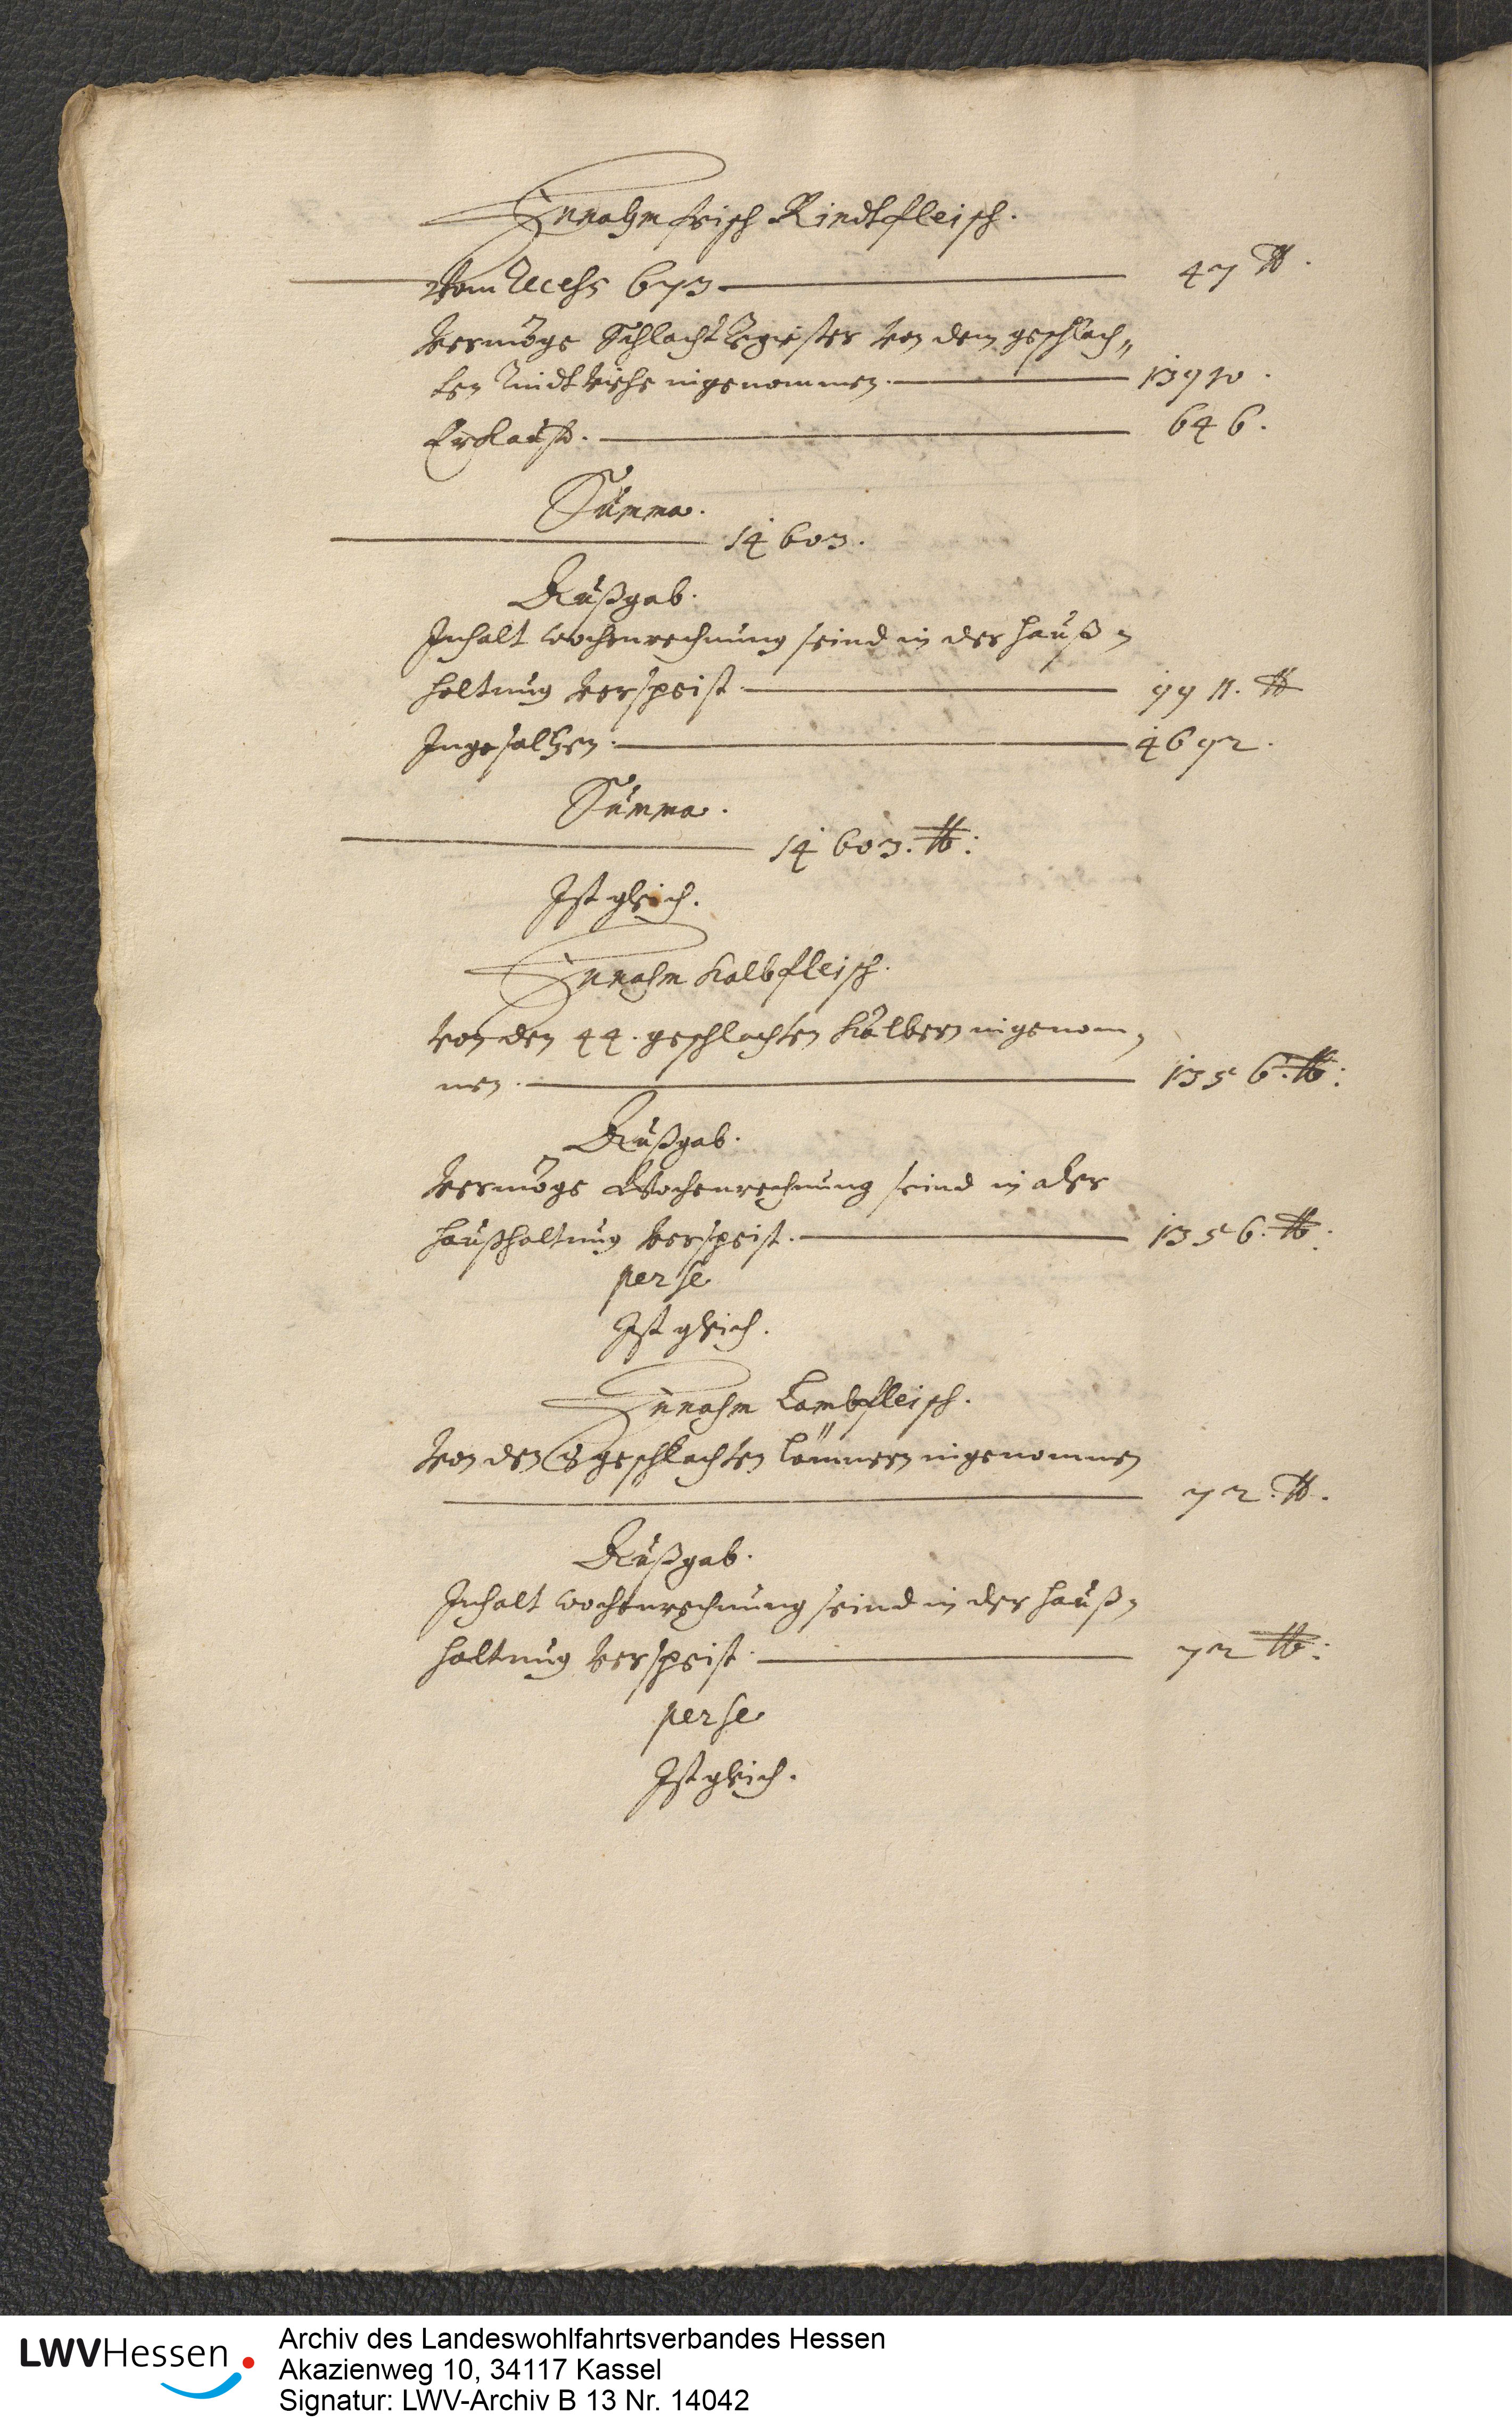 Innahm frisch Rindtfleisch.
Vom Recess 673 — 47 ℔.
Vermöge Schlacht Register von dem geschlach„
ten Rindtviehe ingenommen. — 13910.
Erkaufft. — 646.
Summa.
— 14603.
Außgab.
Inhalt wochenrechnung seind in der hauß-
haltung verspeist. — 9911. ℔
Ingesaltzen. — 4692.
Summa.
— 14603. ℔:
Ist gleich.
Innahm Kalbfleisch.
von den 44. geschlachten Kälbern ingenom-
men. — 1356. ℔:
Außgab.
Vermöge Wochenrechnung seind in der
haußhaltung verspeist. — 1356. ℔:
per se
Ist gleich.
Innahm Lambfleisch.
Von den 8 geschlachten Lämmern ingenommen
— 72. ℔.
Außgab.
Inhalt wochenrechnung seind in der hauß-
haltung verspeist. — 72 ℔:
per se
Ist gleich.
LWVHessen
Archiv des Landeswohlfahrtsverbandes Hessen
Akazienweg 10, 34117 Kassel
Signatur: LWV-Archiv B 13 Nr. 14042